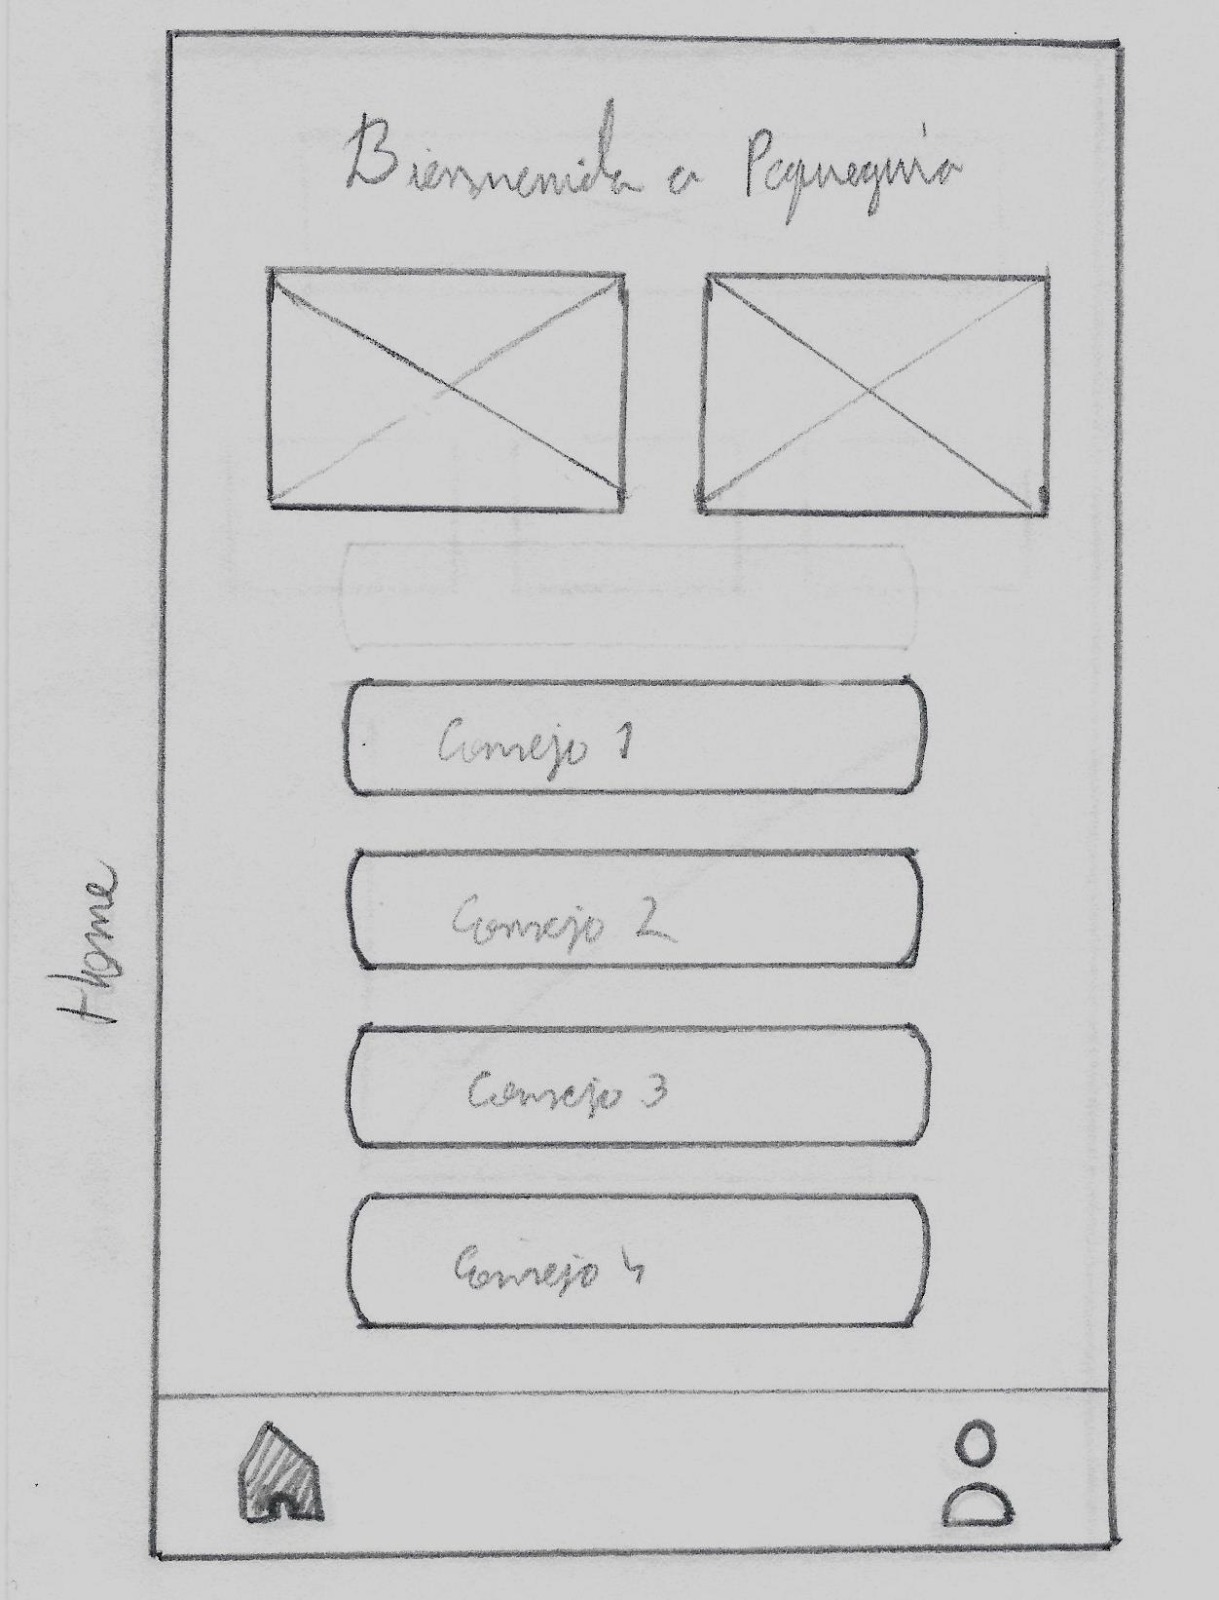 Bienvenida a Pequeguía
Consejo 1
Consejo 2
Consejo 3
Consejo 4
Home